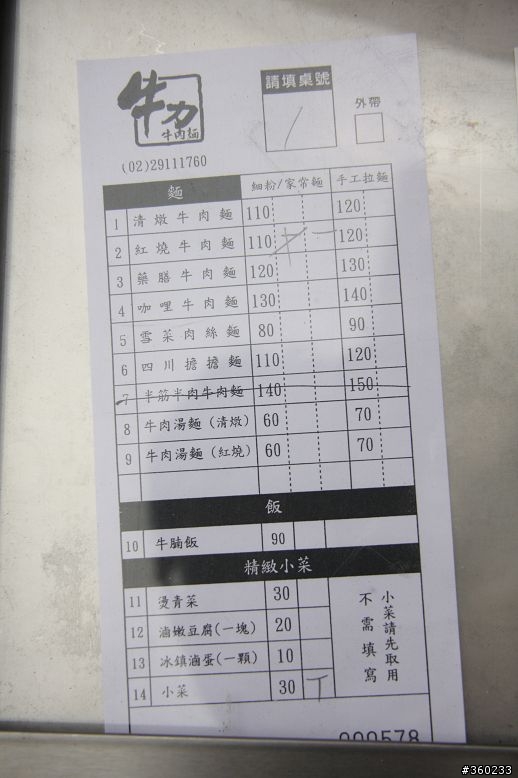 牛力
牛肉麵
(02)29111760
請填桌號
外帶
麵 細粉/家常麵 手工拉麵
1 清燉牛肉麵 110 120
2 紅燒牛肉麵 110 120
3 藥膳牛肉麵 120 130
4 咖哩牛肉麵 130 140
5 雪菜肉絲麵 80 90
6 四川擔擔麵 110 120
7 半筋半肉牛肉麵 140 150
8 牛肉湯麵(清燉) 60 70
9 牛肉湯麵(紅燒) 60 70
飯
10 牛腩飯 90
精緻小菜
11 燙青菜 30
12 滷嫩豆腐(一塊) 20
13 冰鎮滷蛋(一顆) 10
14 小菜 30
小菜請先取用
不需填寫
000578
#360233